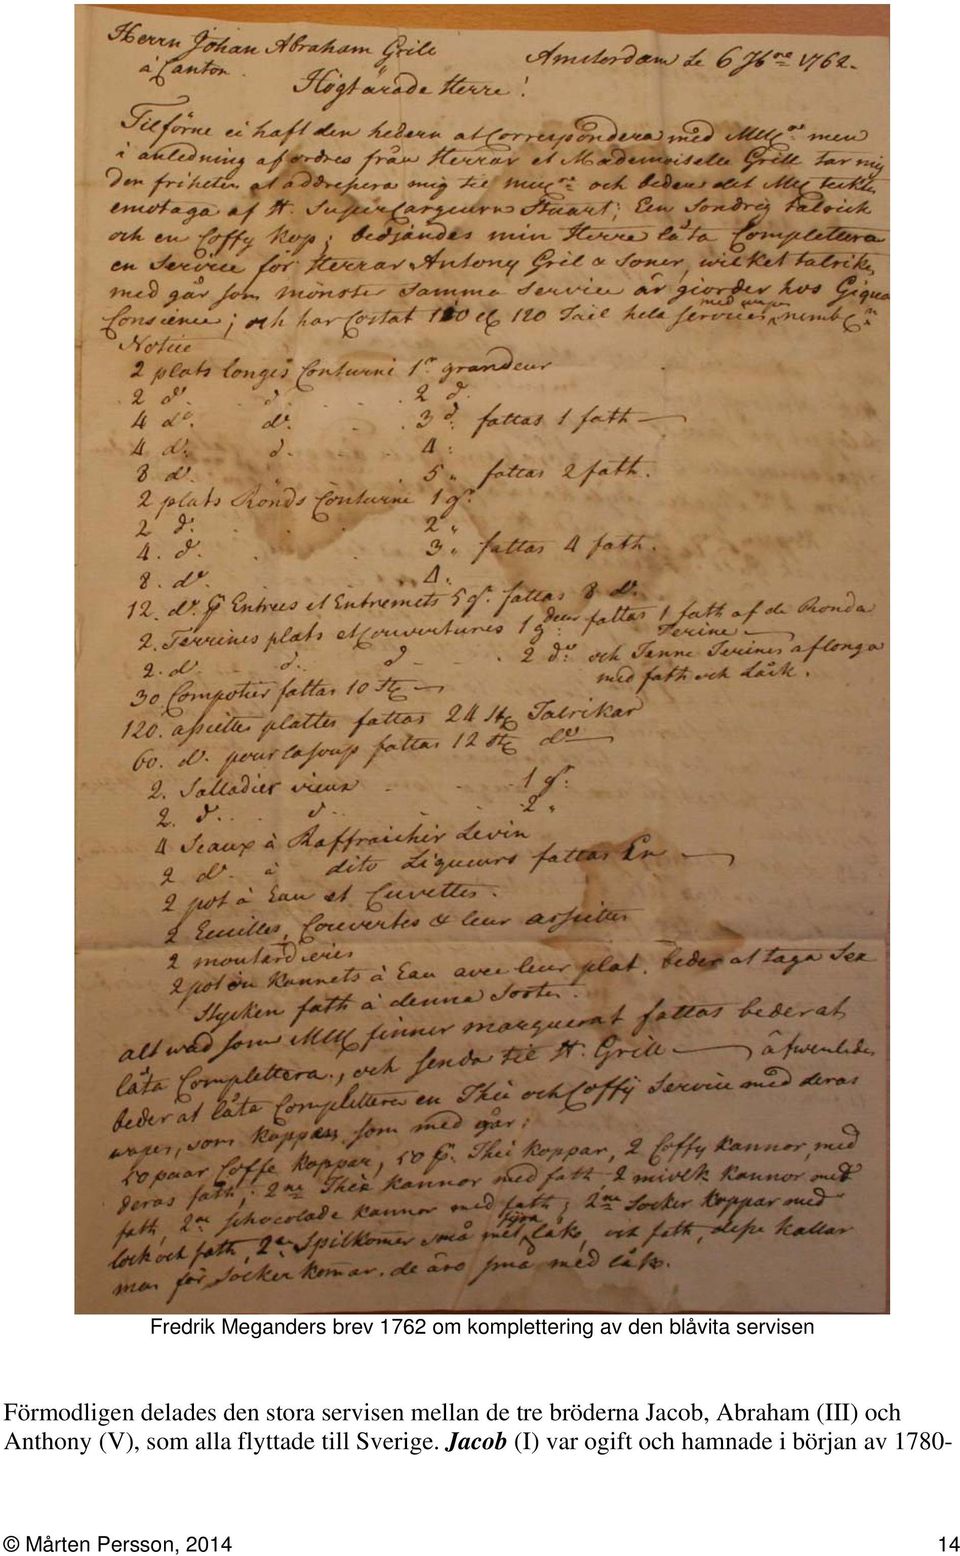 Herrn Johan Abraham Grill Amsterdam Le 6 7bre 1762.
à Canton.
Högtärade Herre!
Tilförne ei haft den hedern at Correspondera med men
i anledning af ordres från Herrar et Mademoiselle Grill tar mig
den friheten at addressera mig til och beder det teckte
emotaga af H. SuperCargeurn Stuart; Een Sondrig talrick
och en Coffy kop; bedjandes min Herre låta Complettera
en Service för Herrar Antony Gril & Soner, wilket talrik
med går som mönster Samma Service är giorder hos
Conscience; och har Costat 110 et 120 Tail hela Servicen med
Notice
2 plats longes Conturni 1r grandeur
2 do. d. 2 d.
4 do. do. 3 d. fattas 1 fath
4 d. d. 4.
8 d. 5 " fattas 2 fath.
2 plats Ronds Conturni 1 gr.
2 d. 2 "
4. d. 3 " fattas 4 fath.
8. do. 4.
12. do. Entrees et Entremets 5 gr. fattas 8 do.
2. Terrines plats et Couvertures 1 gdeur fattas 1 fath af de Ronda Terine
2. d. d. d 2 do. och Jenne Terines aflonga
med fath och Låck.
30 Compotier fattas 10 St
120. assiettes plattes fattas 24 St Talrikar
60. d. pour la soup fattas 12 St do
2. Salladier vieux 1 gr.
2. d. d. 2 "
4 Seaux à Raffraichir Levin
2 do. à dito Liqueurs fattas En
2 pot à Eau et Cuvettes.
2 Ecuilles, Couvertes & leur assiettes
2 moutardieries
2 pot ou Kannets à Eau avec leur plat. beder at taga Sex
Stycken fath à denna Sorter.
alt wad som finner marquerat fattas beder at
låta Complettera, och senda til H. Grill äfwenledes
beder at låta Complettera en Thee och Coffy Service med deras
som Kopparn som med går;
50 paar Coffe koppar, 50 p. Thei koppar, 2 Coffy kannor, med
deras fath; 2ne Thee kannor med fath, 2 miölk kannor med
fath, 2ne schocolade kannor med fath; 2ne Socker koppar med
lock och fath, 2ne Spilkomer små med fyra låk, och fath, desse kallar
man för Socker komar. de äro små med låk.
Fredrik Meganders brev 1762 om komplettering av den blåvita servisen
Förmodligen delades den stora servisen mellan de tre bröderna Jacob, Abraham (III) och
Anthony (V), som alla flyttade till Sverige. Jacob (I) var ogift och hamnade i början av 1780-
© Mårten Persson, 2014 14